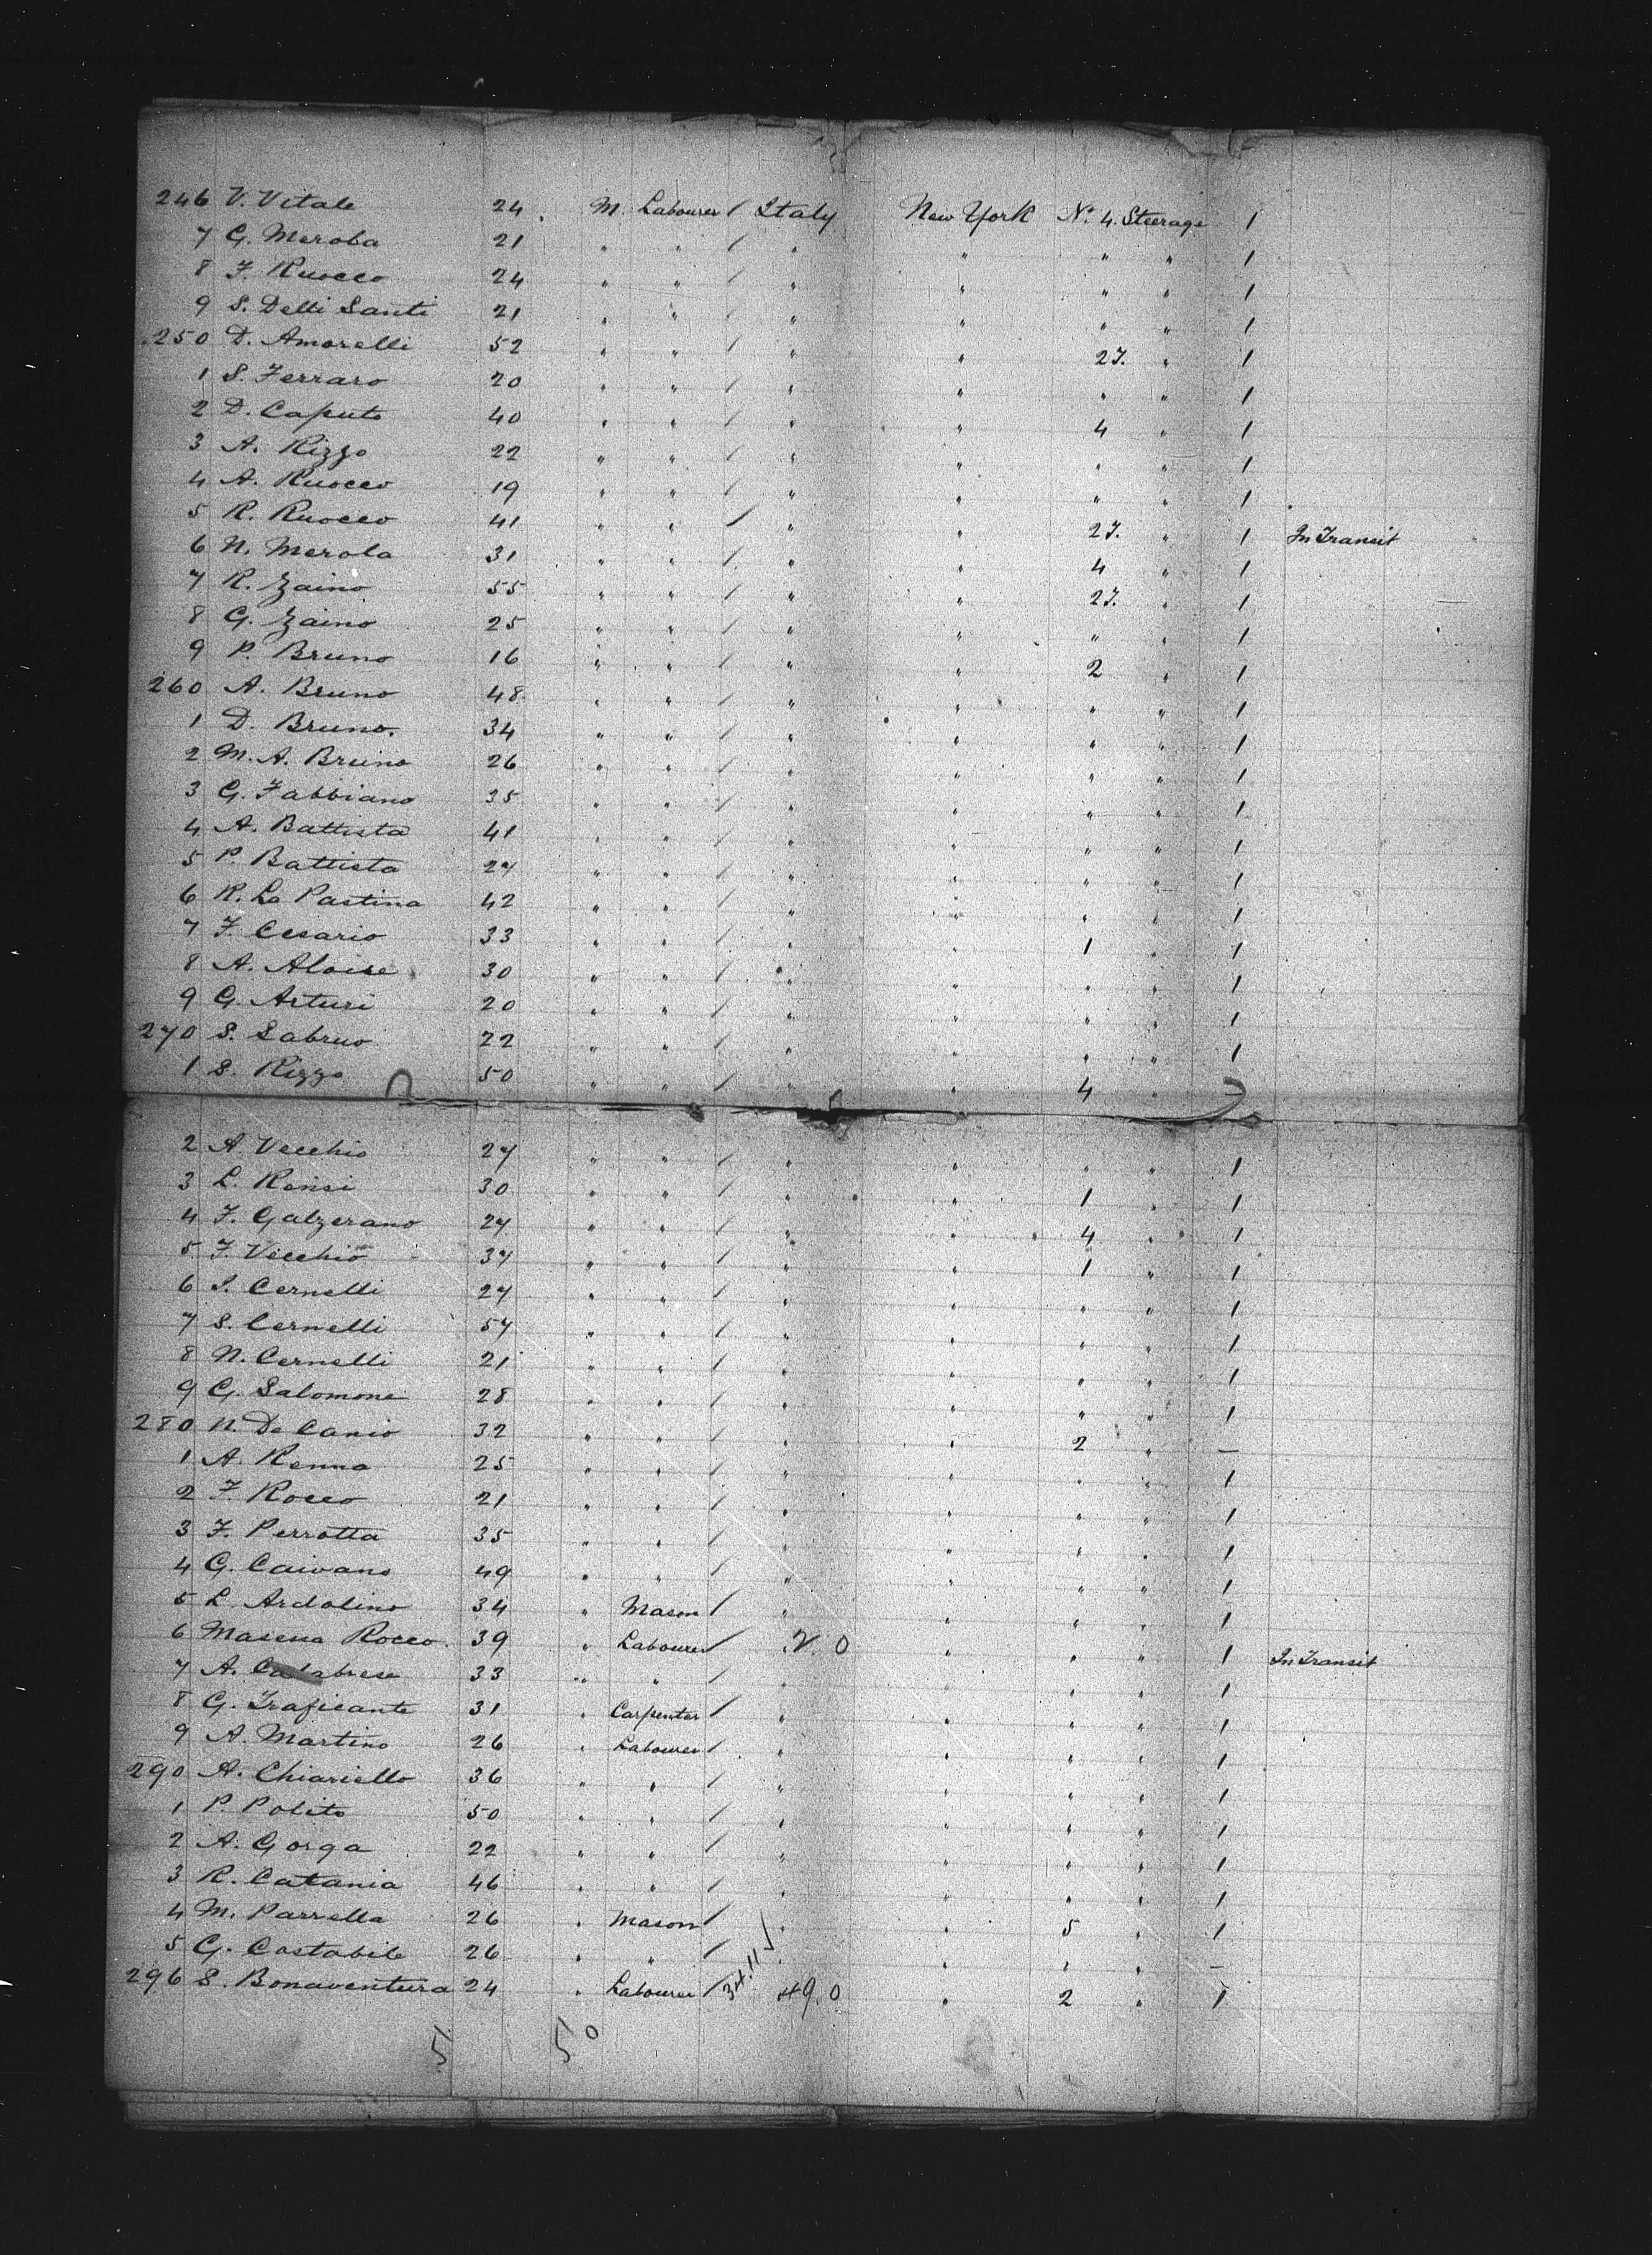 246 V. Vitale 24 M. Labourer / Italy New York No. 4. Steerage 1
7 G. Merola 21 " " / " " " " 1
8 F. Ruocco 24 " " / " " " " 1
9 S. Delli Santi 21 " " / " " " " 1
250 D. Amorelli 52 " " / " " 27. " 1
1 S. Ferraro 20 " " / " " " " 1
2 D. Caputo 40 " " / " " 4 " 1
3 A. Rizzo 22 " " / " " " " 1
4 A. Ruocco 19 " " / " " " " 1
5 R. Ruocco 41 " " / " " 27. " 1 In Transit
6 N. Merola 31 " " / " " 4 " 1
7 R. Zaino 55 " " / " " 27. " 1
8 G. Zaino 25 " " / " " " " 1
9 P. Bruno 16 " " / " " 2 " 1
260 A. Bruno 48 " " / " " " " 1
1 D. Bruno. 34 " " / " " " " 1
2 M. A. Bruno 26 " " / " " " " 1
3 G. Fabbiano 35 " " / " " " " 1
4 A. Battista 41 " " / " " " " 1
5 P. Battista 27 " " / " " " " 1
6 R. La Pastina 42 " " / " " " " 1
7 F. Cesario 33 " " / " " 1 " 1
8 A. Aloise 30 " " / " " " " 1
9 G. Arturi 20 " " / " " " " 1
270 S. Sabruo 22 " " / " " " " 1
1 S. Rizzo 50 " " / " " 4 "
2 A. Vecchio 27 " " / " " " " 1
3 L. Rensi 30 " " / " " 1 " 1
4 F. Galzerano 27 " " / " " 4 " 1
5 F. Vecchio 37 " " / " " 1 " 1
6 S. Cernelli 27 " " / " " " " 1
7 S. Cernelli 57 " " / " " " " 1
8 N. Cernelli 21 " " / " " " " 1
9 G. Salomone 28 " " / " " " " 1
280 N. De Canio 32 " " / " " 2 " —
1 A. Renna 25 " " / " " " " 1
2 F. Rocco 21 " " / " " " " 1
3 F. Perrotta 35 " " / " " " " 1
4 G. Caivano 49 " " / " " " " 1
5 L. Ardolino 34 " Mason / " " " " 1
6 Masena Rocco. 39 " Labourer / " " " 1 In Transit
7 A. Calabrese 33 " " / " " " " 1
8 G. Traficante 31 " Carpenter / " " " " 1
9 A. Martino 26 " Labourer / " " " " 1
290 A. Chiariello 36 " " / " " " " 1
1 P. Polito 50 " " / " " " " 1
2 A. Gorga 22 " " / " " " " 1
3 R. Catania 46 " " / " " " " 1
4 M. Parrella 26 " Mason / " " 5 " 1
5 G. Costabile 26 " " / " " " " —
296 S. Bonaventura 24 " Labourer / 49.0 " 2 " 1
5 50